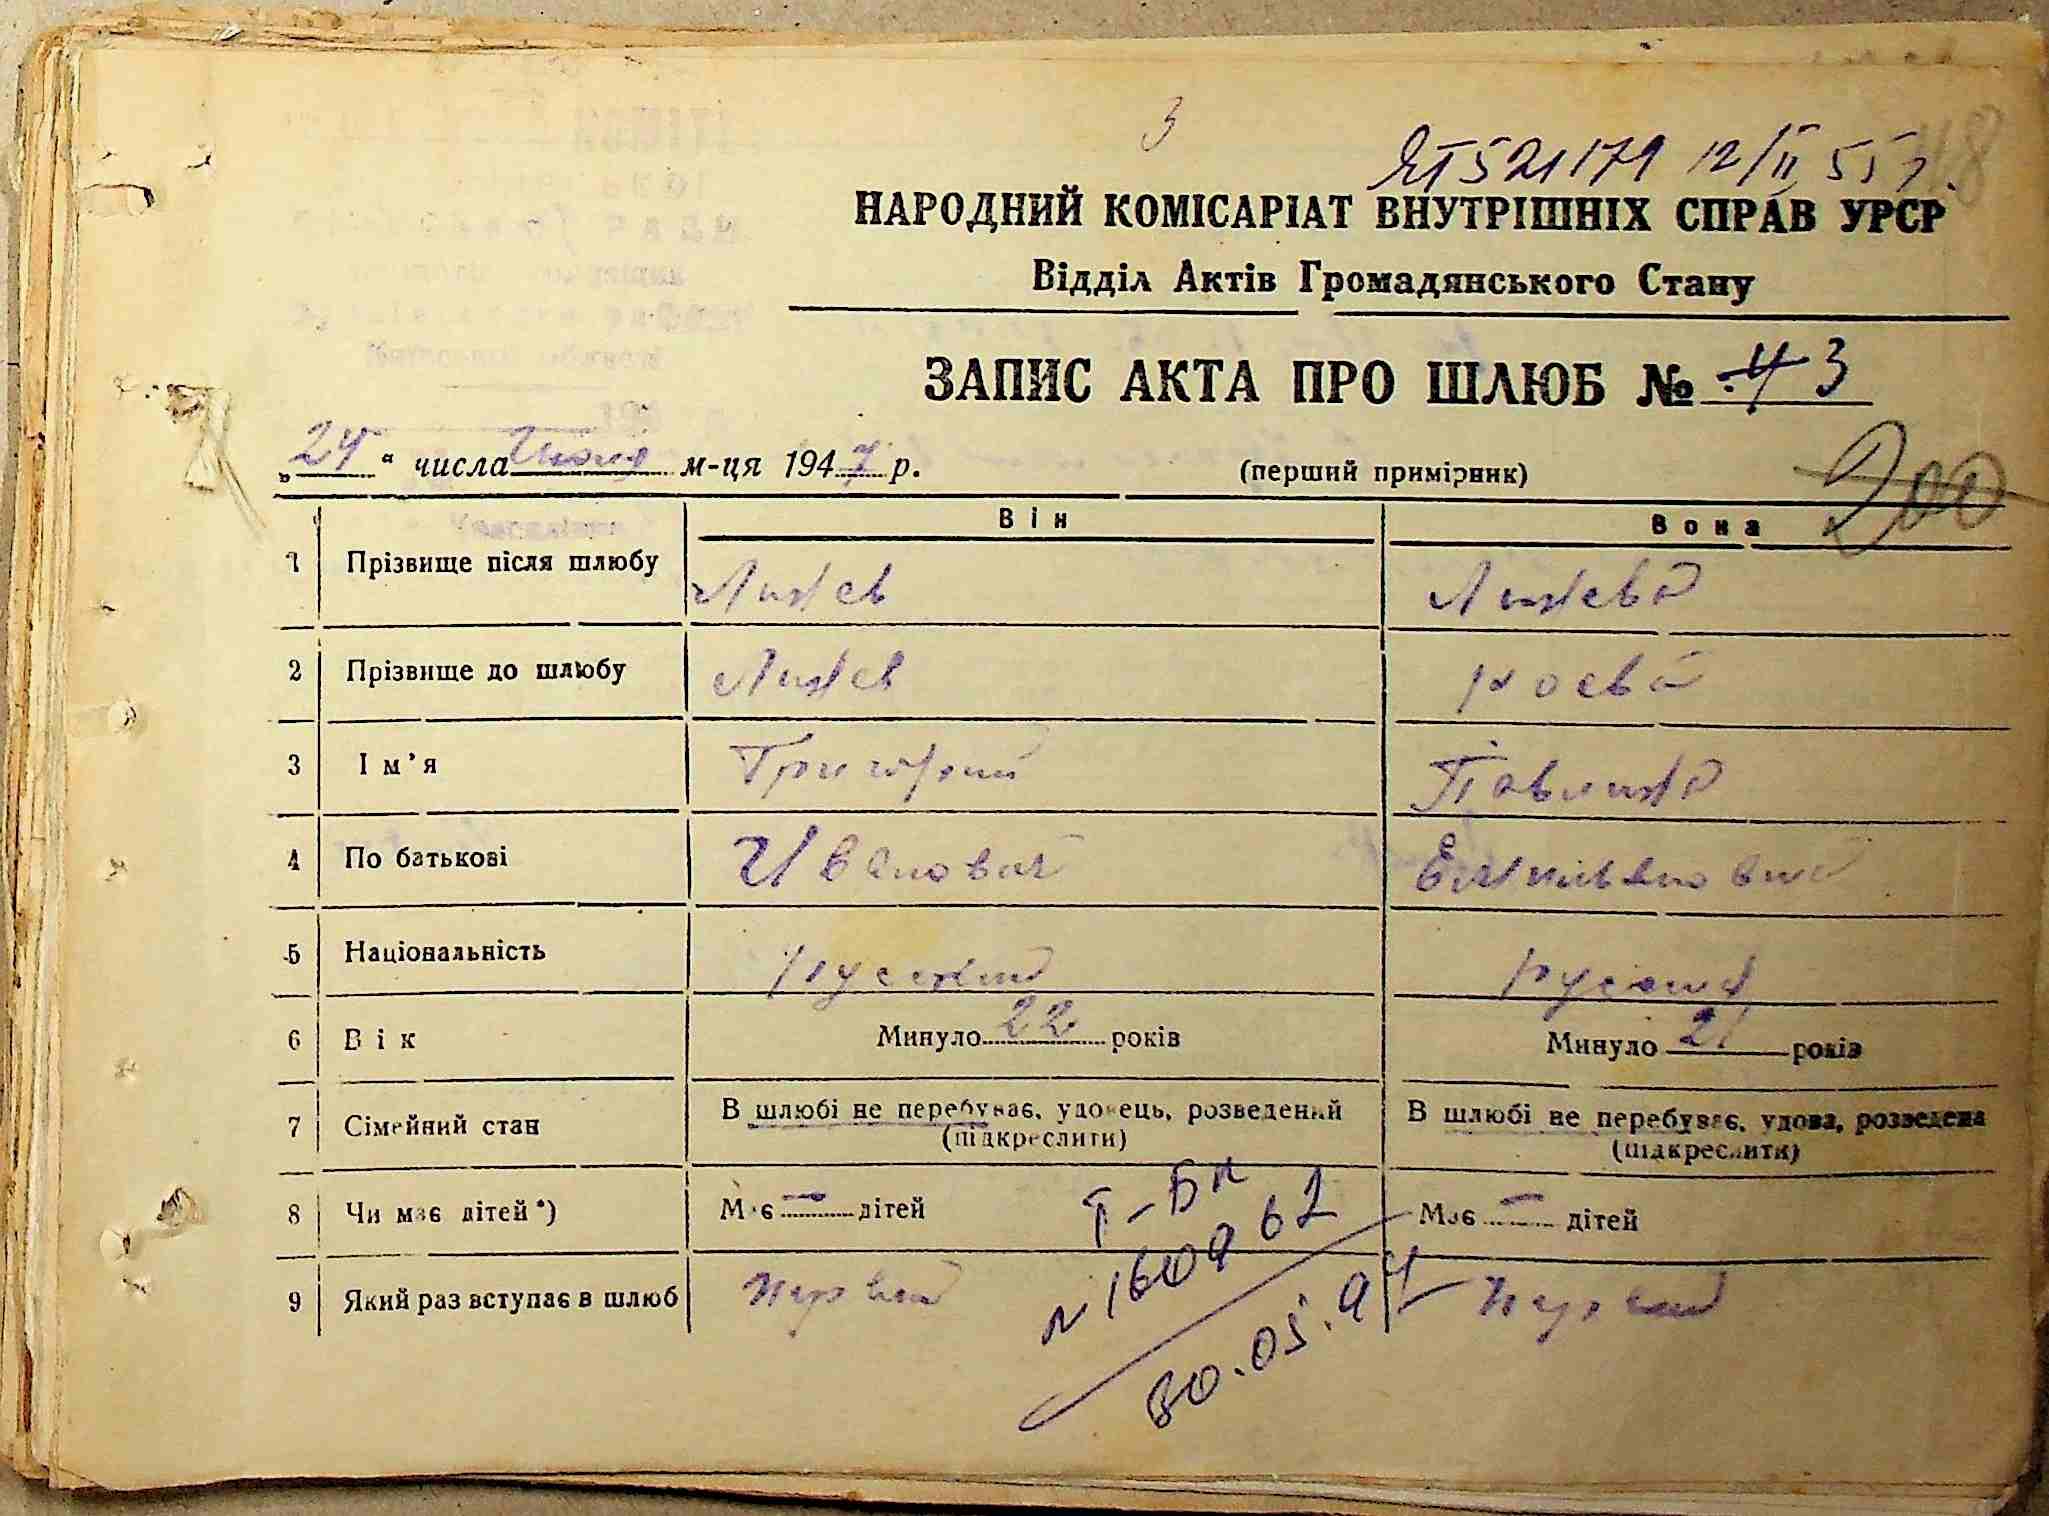 3
ЯТ 521179 12/II 55 г.
48
НАРОДНИЙ КОМІСАРІАТ ВНУТРІШНІХ СПРАВ УРСР
Відділ Актів Громадянського Стану
ЗАПИС АКТА ПРО ШЛЮБ № 43
„24“ числа Июля м-ця 1947 р. (перший примірник)
200
Він Вона
1 Прізвище після шлюбу Линев Линева
2 Прізвище до шлюбу Линев
3 Ім'я Григорий Павлина
4 По батькові Иванович Емильяновна
5 Національність русский русская
6 Вік Минуло 22 років Минуло 21 років
7 Сімейний стан В шлюбі не перебуває, удовець, розведений (підкреслити) В шлюбі не перебуває, удова, розведена (підкреслити)
8 Чи має дітей*) Має — дітей Має — дітей
9 Який раз вступає в шлюб первый первый
№ 160962
30.05.94